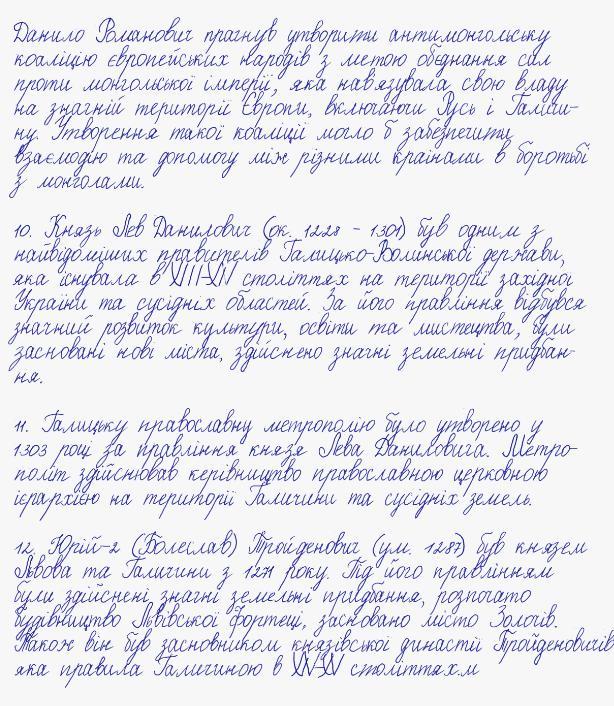 Данило Романович прагнув утворити антимонгольську
коаліцію європейських народів з метою обєднання сил
проти монгольської імперії, яка навязувала свою владу
на значній території Європи, включаючи Русь і Галичи-
ну. Утворення такої коаліції могло б забезпечити
взаємодію та допомогу між різними країнами в боротьбі
з монголами.
10. Князь Лев Данилович (ок. 1228 - 1301) був одним з
найвідоміших правителів Галицько-Волинської держави,
яка існувала в XIII-XIV століттях на території західної
України та сусідніх областей. За його правління відбувся
значний розвиток культури, освіти та мистецтва, були
засновані нові міста, здійснено значні земельні придбан-
ня.
11. Галицьку православну метрополію було утворено у
1303 році за правління князя Лева Даниловича. Метро-
політ здійснював керівництво православною церковною
ієрархією на території Галичини та сусідніх земель.
12. Юрій-2 (Болеслав) Тройденович (ум. 1287) був князем
Львова та Галичини з 1271 року. Під його правлінням
були здійснені значні земельні придбання, розпочато
будівництво Львівської фортеці, засновано місто Золочів.
Також він був засновником князівської династії Тройденовичів,
яка правила Галичиною в XIV-XV століттях.м